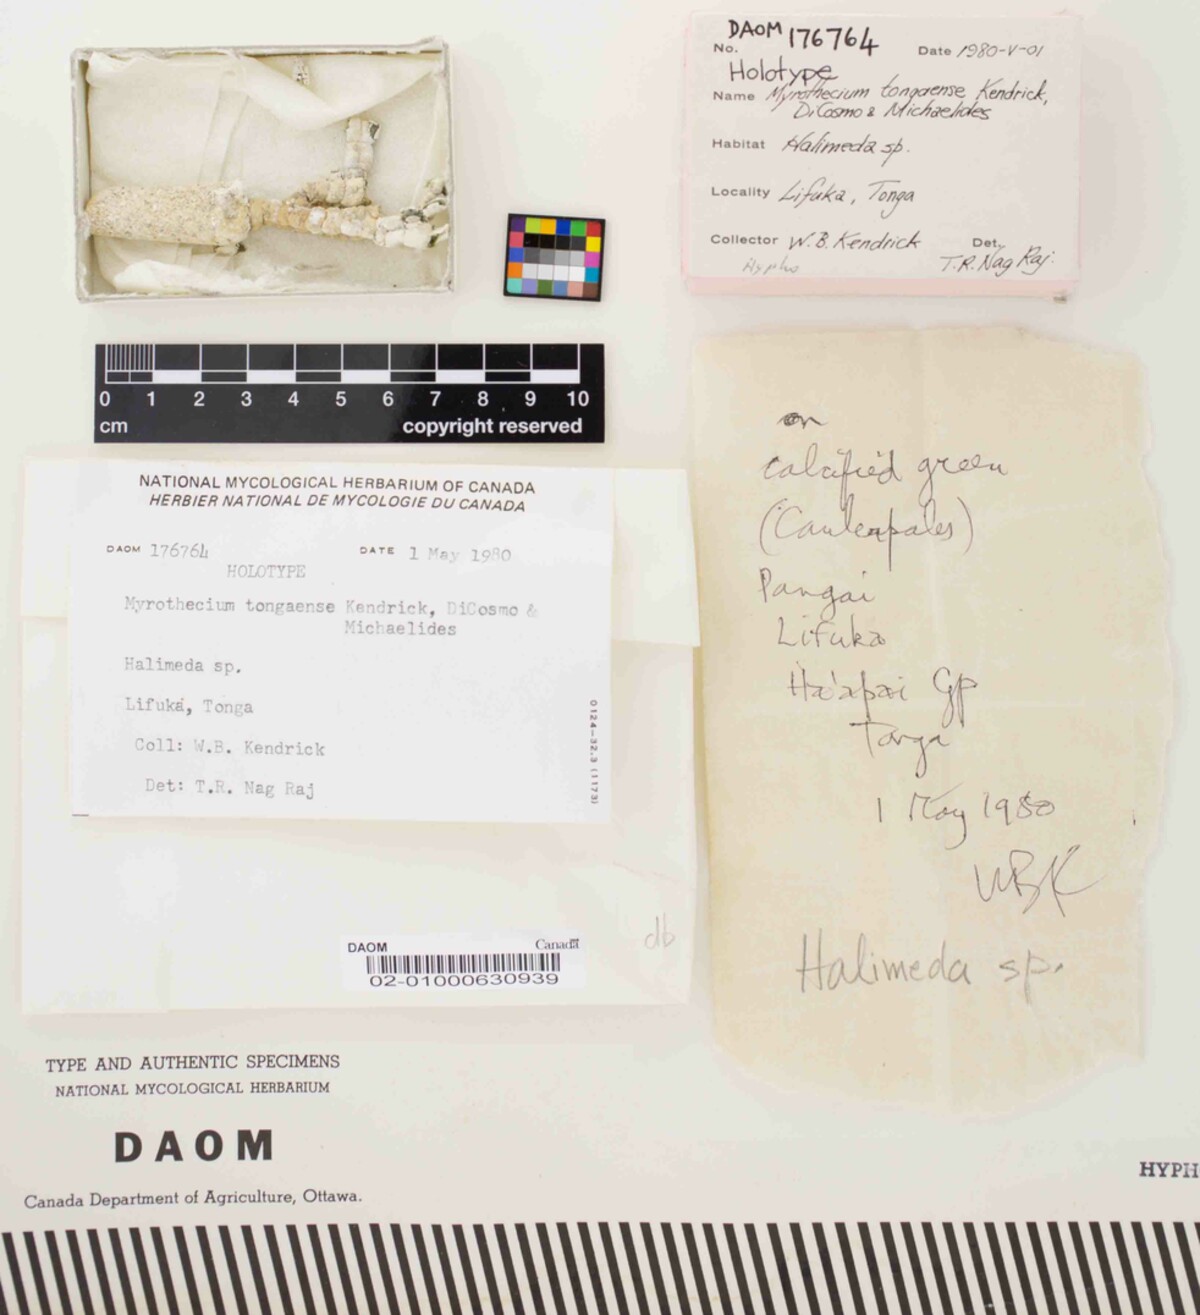 DAOM 176764
No.
Date 1980-V-01
Holotype
Name Myrothecium tongaense Kendrick,
DiCosmo & Michaelides
Habitat Halimeda sp.
Locality Lifuka, Tonga
Collector W.B. Kendrick
Det.
T.R. Nag Raj.
Hypho
0 1 2 3 4 5 6 7 8 9 10
cm copyright reserved
NATIONAL MYCOLOGICAL HERBARIUM OF CANADA
HERBIER NATIONAL DE MYCOLOGIE DU CANADA
DAOM 176764 DATE 1 May 1980
HOLOTYPE
Myrothecium tongaense Kendrick, DiCosmo &
Michaelides
Halimeda sp.
Lifuka, Tonga
Coll: W.B. Kendrick
Det: T.R. Nag Raj
0124-32.3 (11/73)
on
calcified green
(Caulerpales)
Pangai
Lifuka
Ha'apai Gp
Tonga
1 May 1980
WBK
Halimeda sp.
db
DAOM Canada
02-01000630939
TYPE AND AUTHENTIC SPECIMENS
NATIONAL MYCOLOGICAL HERBARIUM
DAOM
Canada Department of Agriculture, Ottawa.
HYPH